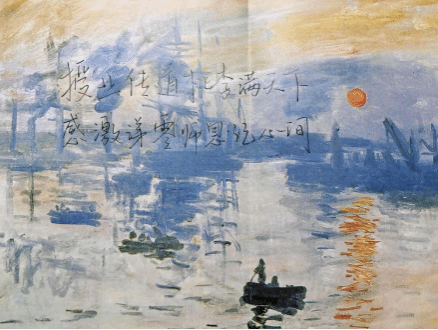 授业传道桃李满天下
感激涕零师恩记心间